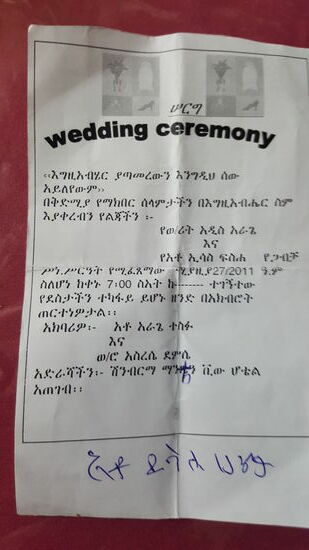 ሠርግ
wedding ceremony
‹‹እግዚአብሄር ያጣመረውን እንግዲህ ሰው
አይለየውም››
በቅድሚያ የማክበር ሰላምታችን በእግዚአብሔር ስም
እያቀረብን የልጃችን ፡-
የወ/ሪት አዲስ አራጌ
እና
የአቶ ኢሳስ ፍስሐ የጋብቻ
ሥነ-ሥርዓት የሚፈጸመው 27/2011 ዓ.ም
ስለሆነ ከቀኑ 7፡00 ሰአት ከ------- ተገኝተው
የደስታችን ተካፋይ ይሆኑ ዘንድ በአክብሮት
ጠርተነዎታል፡፡
አክባሪዎ፡- አቶ አራጌ ተስፉ
እና
ወ/ሮ አስረሴ ደምሴ
አድራሻችን፡- ሽንብርማ ቪው ሆቴል
አጠገብ፡፡